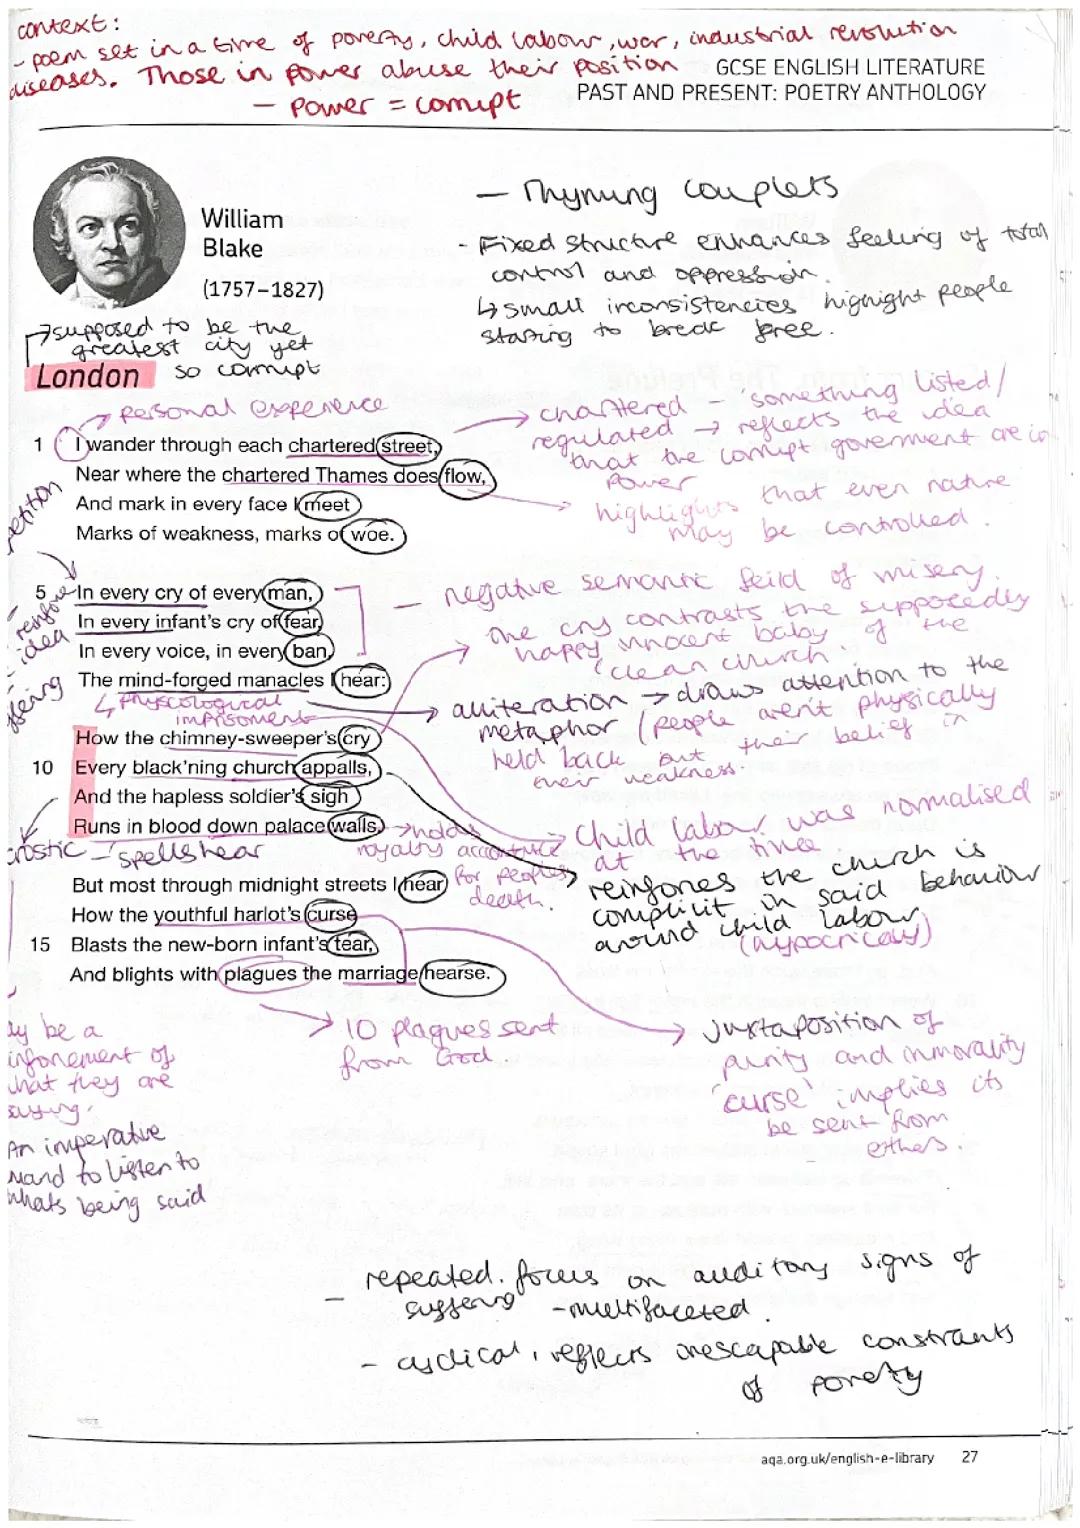 context:
- poem set in a time of poverty, child labour, war, industrial revolution
diseases. Those in power abuse their position
- Power = corrupt
GCSE ENGLISH LITERATURE
PAST AND PRESENT: POETRY ANTHOLOGY
William
Blake
(1757–1827)
- Rhyming couplets
- Fixed structure enhances feeling of total
control and oppression.
↳ small inconsistencies highlight people
starting to break free.
→ supposed to be the
greatest city yet
so corrupt
London
→ Personal experience
→ chartered - 'something listed/
regulated → reflects the idea
that the corrupt government are in
power
highlights that even nature
may be controlled.
1 I wander through each chartered street,
Near where the chartered Thames does flow,
And mark in every face I meet
Marks of weakness, marks of woe.
5 In every cry of every man,
In every infant's cry of fear,
In every voice, in every ban,
The mind-forged manacles I hear:
idea
↳ Physcological
imprisoment
- negative semantic feild of misery.
the cry contrasts the supposedly
happy innocent baby of the
'clean church.
alliteration → draws attention to the
metaphor (people aren't physically
held back but their belief in
their weakness.
How the chimney-sweeper's cry
10 Every black'ning church appalls,
And the hapless soldier's sigh
Runs in blood down palace walls.
- spells hear
→ holds
royalty
for peoples
death.
→ child labour was normalised
at the time
reinforces the church is
complicit in said behaviour
around child labour
(hypocricay)
But most through midnight streets I hear
How the youthful harlot's curse
15 Blasts the new-born infant's tear,
And blights with plagues the marriage hearse.
→ 10 plagues sent
from God
→ juxtaposition of
purity and immorality
'curse' implies its
be sent from
others.
be a
of
what they are
saying.
An imperative
to listen to
whats being said
- repeated focus on auditory signs of
suffering - multifaceted.
- cyclical, reflects inescapable constraints
of poverty
aqa.org.uk/english-e-library 27